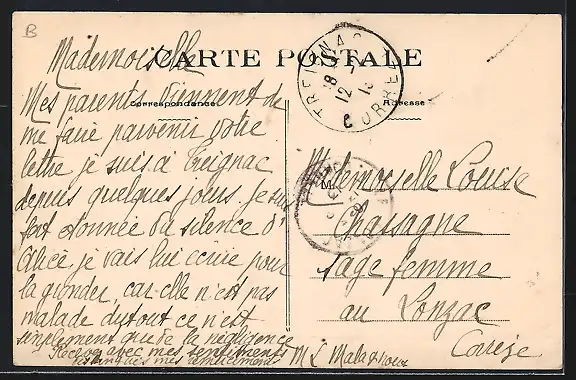 B
CARTE POSTALE
Correspondance
Adresse
TREIGNAC
CORREZE
Mademoiselle
Mes parents viennent de
me faire parvenir votre
lettre je suis à Treignac
depuis quelques jours. Je suis
fort étonnée du silence d'
Alice je vais lui écrire pour
la gronder, car elle n'est pas
malade du tout ce n'est
simplement que de la négligence
Recevez avec mes sentiments
mes remerciements
M L
M
Mademoiselle Louise
Chassagne
sage femme
au Lonzac
Corrèze